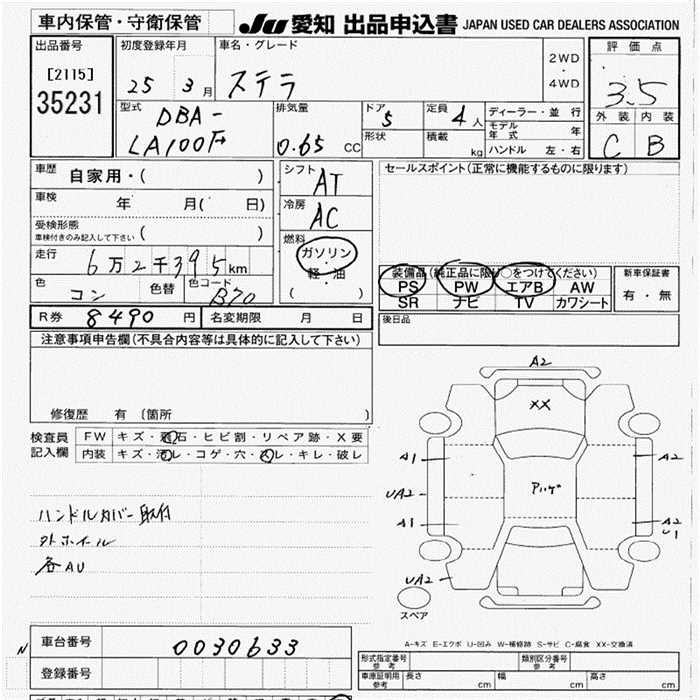 車内保管・守衛保管
JU 愛知 出品申込書 JAPAN USED CAR DEALERS ASSOCIATION
出品番号
[2115]
35231
初度登録年月
25 3月
車名・グレード
ステラ
2WD
・
4WD
評価点
3.5
外装 内装
C B
型式
DBA-
LA100F
排気量
0.65 CC
ドア
5
形状
定員
4人
積載
kg
ディーラー・並行
モデル年式 年
ハンドル 左・右
車歴
自家用・( )
車検
年 月( 日)
受検形態
車検付きのみ記入して下さい ( )
走行
6万2千395km
色
コン
色替
色コード
B70
シフト
AT
冷房
AC
燃料
ガソリン
・
軽・油
( )
セールスポイント(正常に機能するものに限ります)
装備品(純正品に限り○をつけてください)
PS PW エアB AW
SR ナビ TV カワシート
新車保証書
有・無
R券 8490 円 名変期限 月 日
後日品
注意事項申告欄(不具合内容等は具体的に記入して下さい)
修復歴 有 〔箇所 〕
検査員
記入欄
FW キズ・飛石・ヒビ割・リペア跡・X要
内装 キズ・汚レ・コゲ・穴・スレ・キレ・破レ
ハンドルカバー取付
外ホイール
各AU
A2
XX
A1
A2
UA2
A1
A2
U1
UA2
スペア
A-キズ E-エクボ U-凹み W-補修跡 S-サビ C-腐食 XX-交換済
車台番号 0030633
N
登録番号
形式指定番号
参考
類別区分番号
参考
車庫証明用
参考
長さ cm 幅 cm 高さ cm